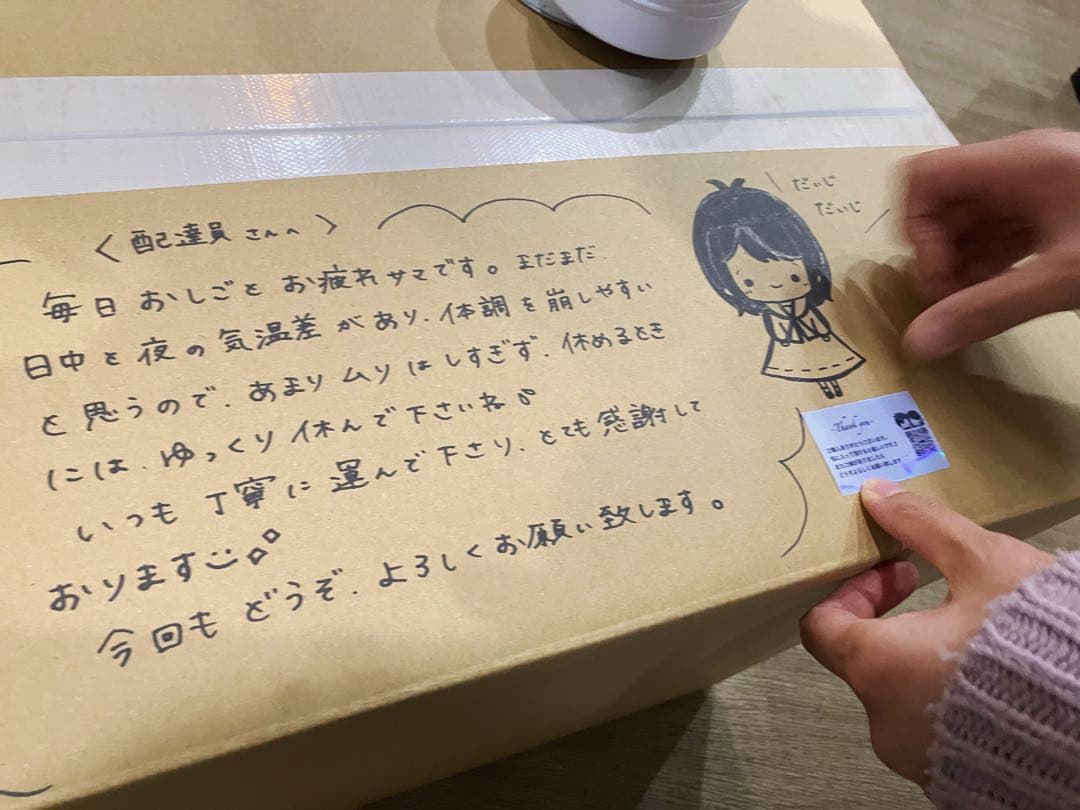 〈配達員さんへ〉
毎日おしごとお疲れサマです。まだまだ
日中と夜の気温差があり、体調を崩しやすい
と思うので、あまりムリはしすぎず、休めるとき
には、ゆっくり休んで下さいね
いつも丁寧に運んで下さり、とても感謝して
おります
今回もどうぞ、よろしくお願い致します。
だいじ
だいじ
-Thank you-
ご購入ありがとうございます。